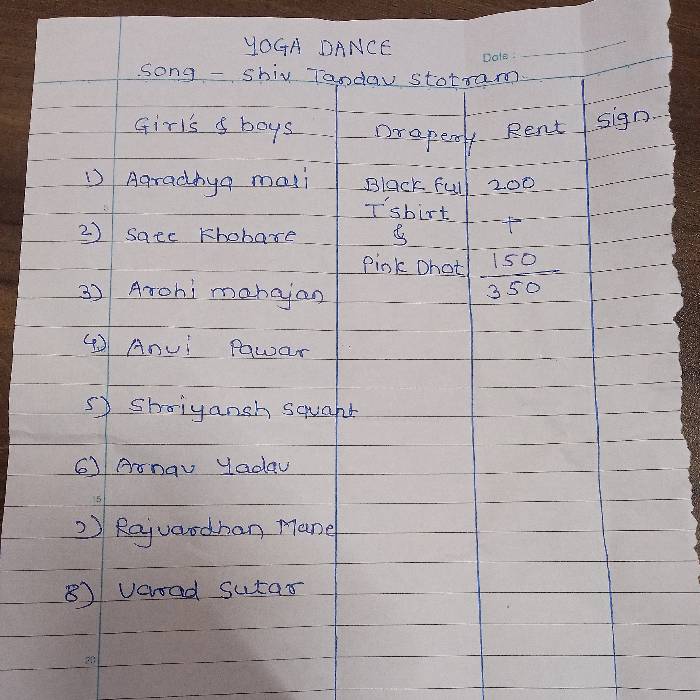 YOGA DANCE
Date :
Song - Shiv Tandav Stotram
Girl's & boys Drapery Rent Sign.
1) Aaradhya mali Black ful 200
T'shirt +
2) Saee Khobare &
Pink Dhot 150
3) Arohi mahajan 350
4) Anvi Pawar
5) Shriyansh Sawant
6) Arnav Yadav
15
7) Rajvardhan Mane
8) Varad Sutar
20